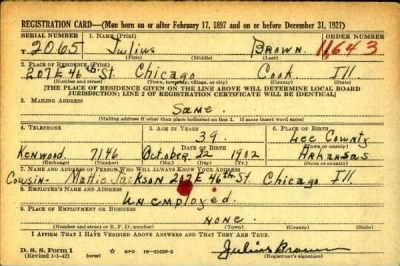 REGISTRATION CARD—(Men born on or after February 17, 1897 and on or before December 31, 1921)
SERIAL NUMBER 1. NAME (Print) ORDER NUMBER
T 2065 Julius Brown 11,643
(First) (Middle) (Last)
2. PLACE OF RESIDENCE (Print)
207 E 46th St. Chicago Cook Ill
(Number and street) (Town, township, village, or city) (County) (State)
[THE PLACE OF RESIDENCE GIVEN ON THE LINE ABOVE WILL DETERMINE LOCAL BOARD
JURISDICTION; LINE 2 OF REGISTRATION CERTIFICATE WILL BE IDENTICAL]
3. MAILING ADDRESS
Same.
[Mailing address if other than place indicated on line 2. If same insert word same]
4. TELEPHONE 5. AGE IN YEARS 6. PLACE OF BIRTH
39 Lee County
DATE OF BIRTH (Town or county)
Kenwood 7146 October 22 1902 Arkansas
(Exchange) (Number) (Mo.) (Day) (Yr.) (State or country)
7. NAME AND ADDRESS OF PERSON WHO WILL ALWAYS KNOW YOUR ADDRESS
Cousin- Mattie Jackson 207 E 46th St. Chicago Ill.
8. EMPLOYER'S NAME AND ADDRESS
Unemployed.
9. PLACE OF EMPLOYMENT OR BUSINESS
none.
(Number and street or R. F. D. number) (Town) (County) (State)
I AFFIRM THAT I HAVE VERIFIED ABOVE ANSWERS AND THAT THEY ARE TRUE.
D. S. S. Form 1
(Revised 1-1-42) (over) GPO 16-21630-2 Julius Brown
(Registrant's signature)